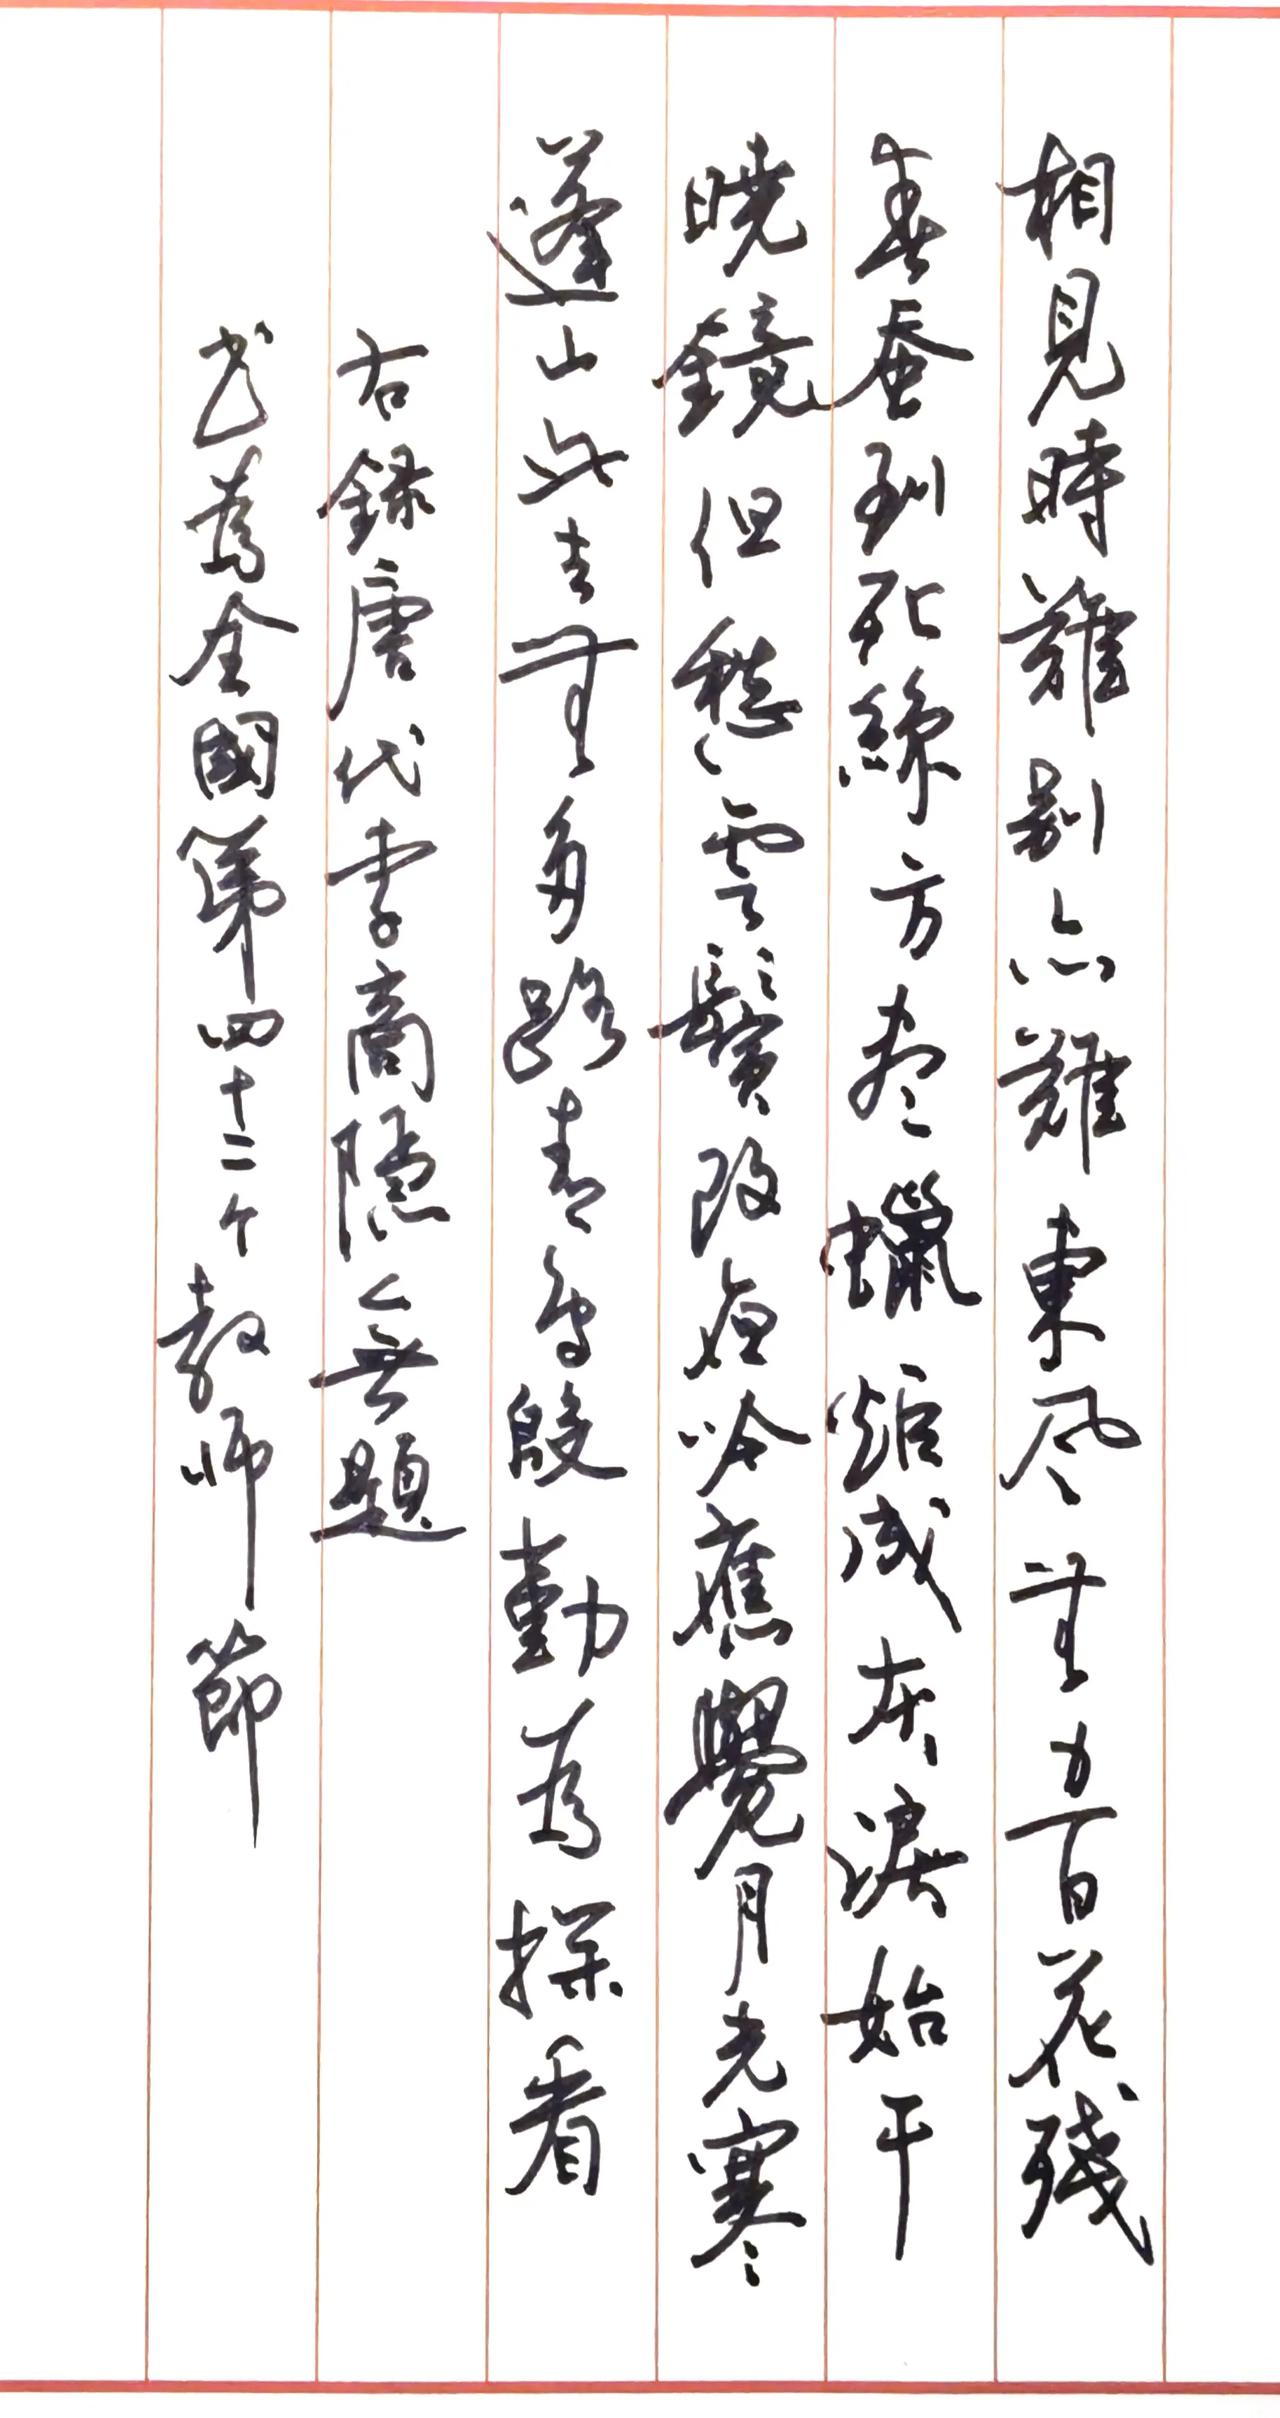 相見時難別亦難東风無力百花殘
春蚕到死絲方尽蠟炬成灰淚始干
曉鏡但愁雲鬢改夜吟應覺月光寒
蓬山此去無多路青鸟殷勤為探看
右録唐代李商隐之無題
书為全國第四十二个教师節